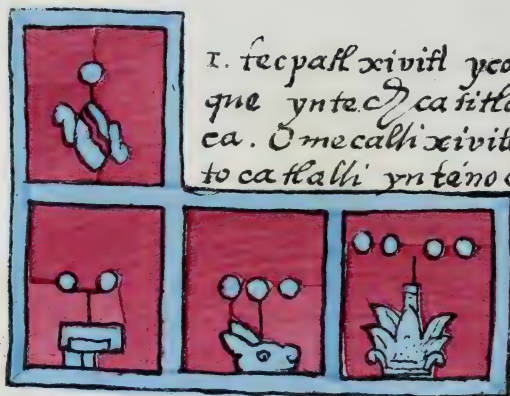 I. tecpatl xivitl yco
que yntech catitla
ca. Omecalli xivit
to ca tlalli yn teno